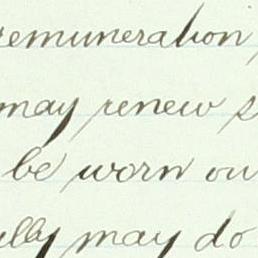 remuneration,
may renew s
be worn ou
ully may do